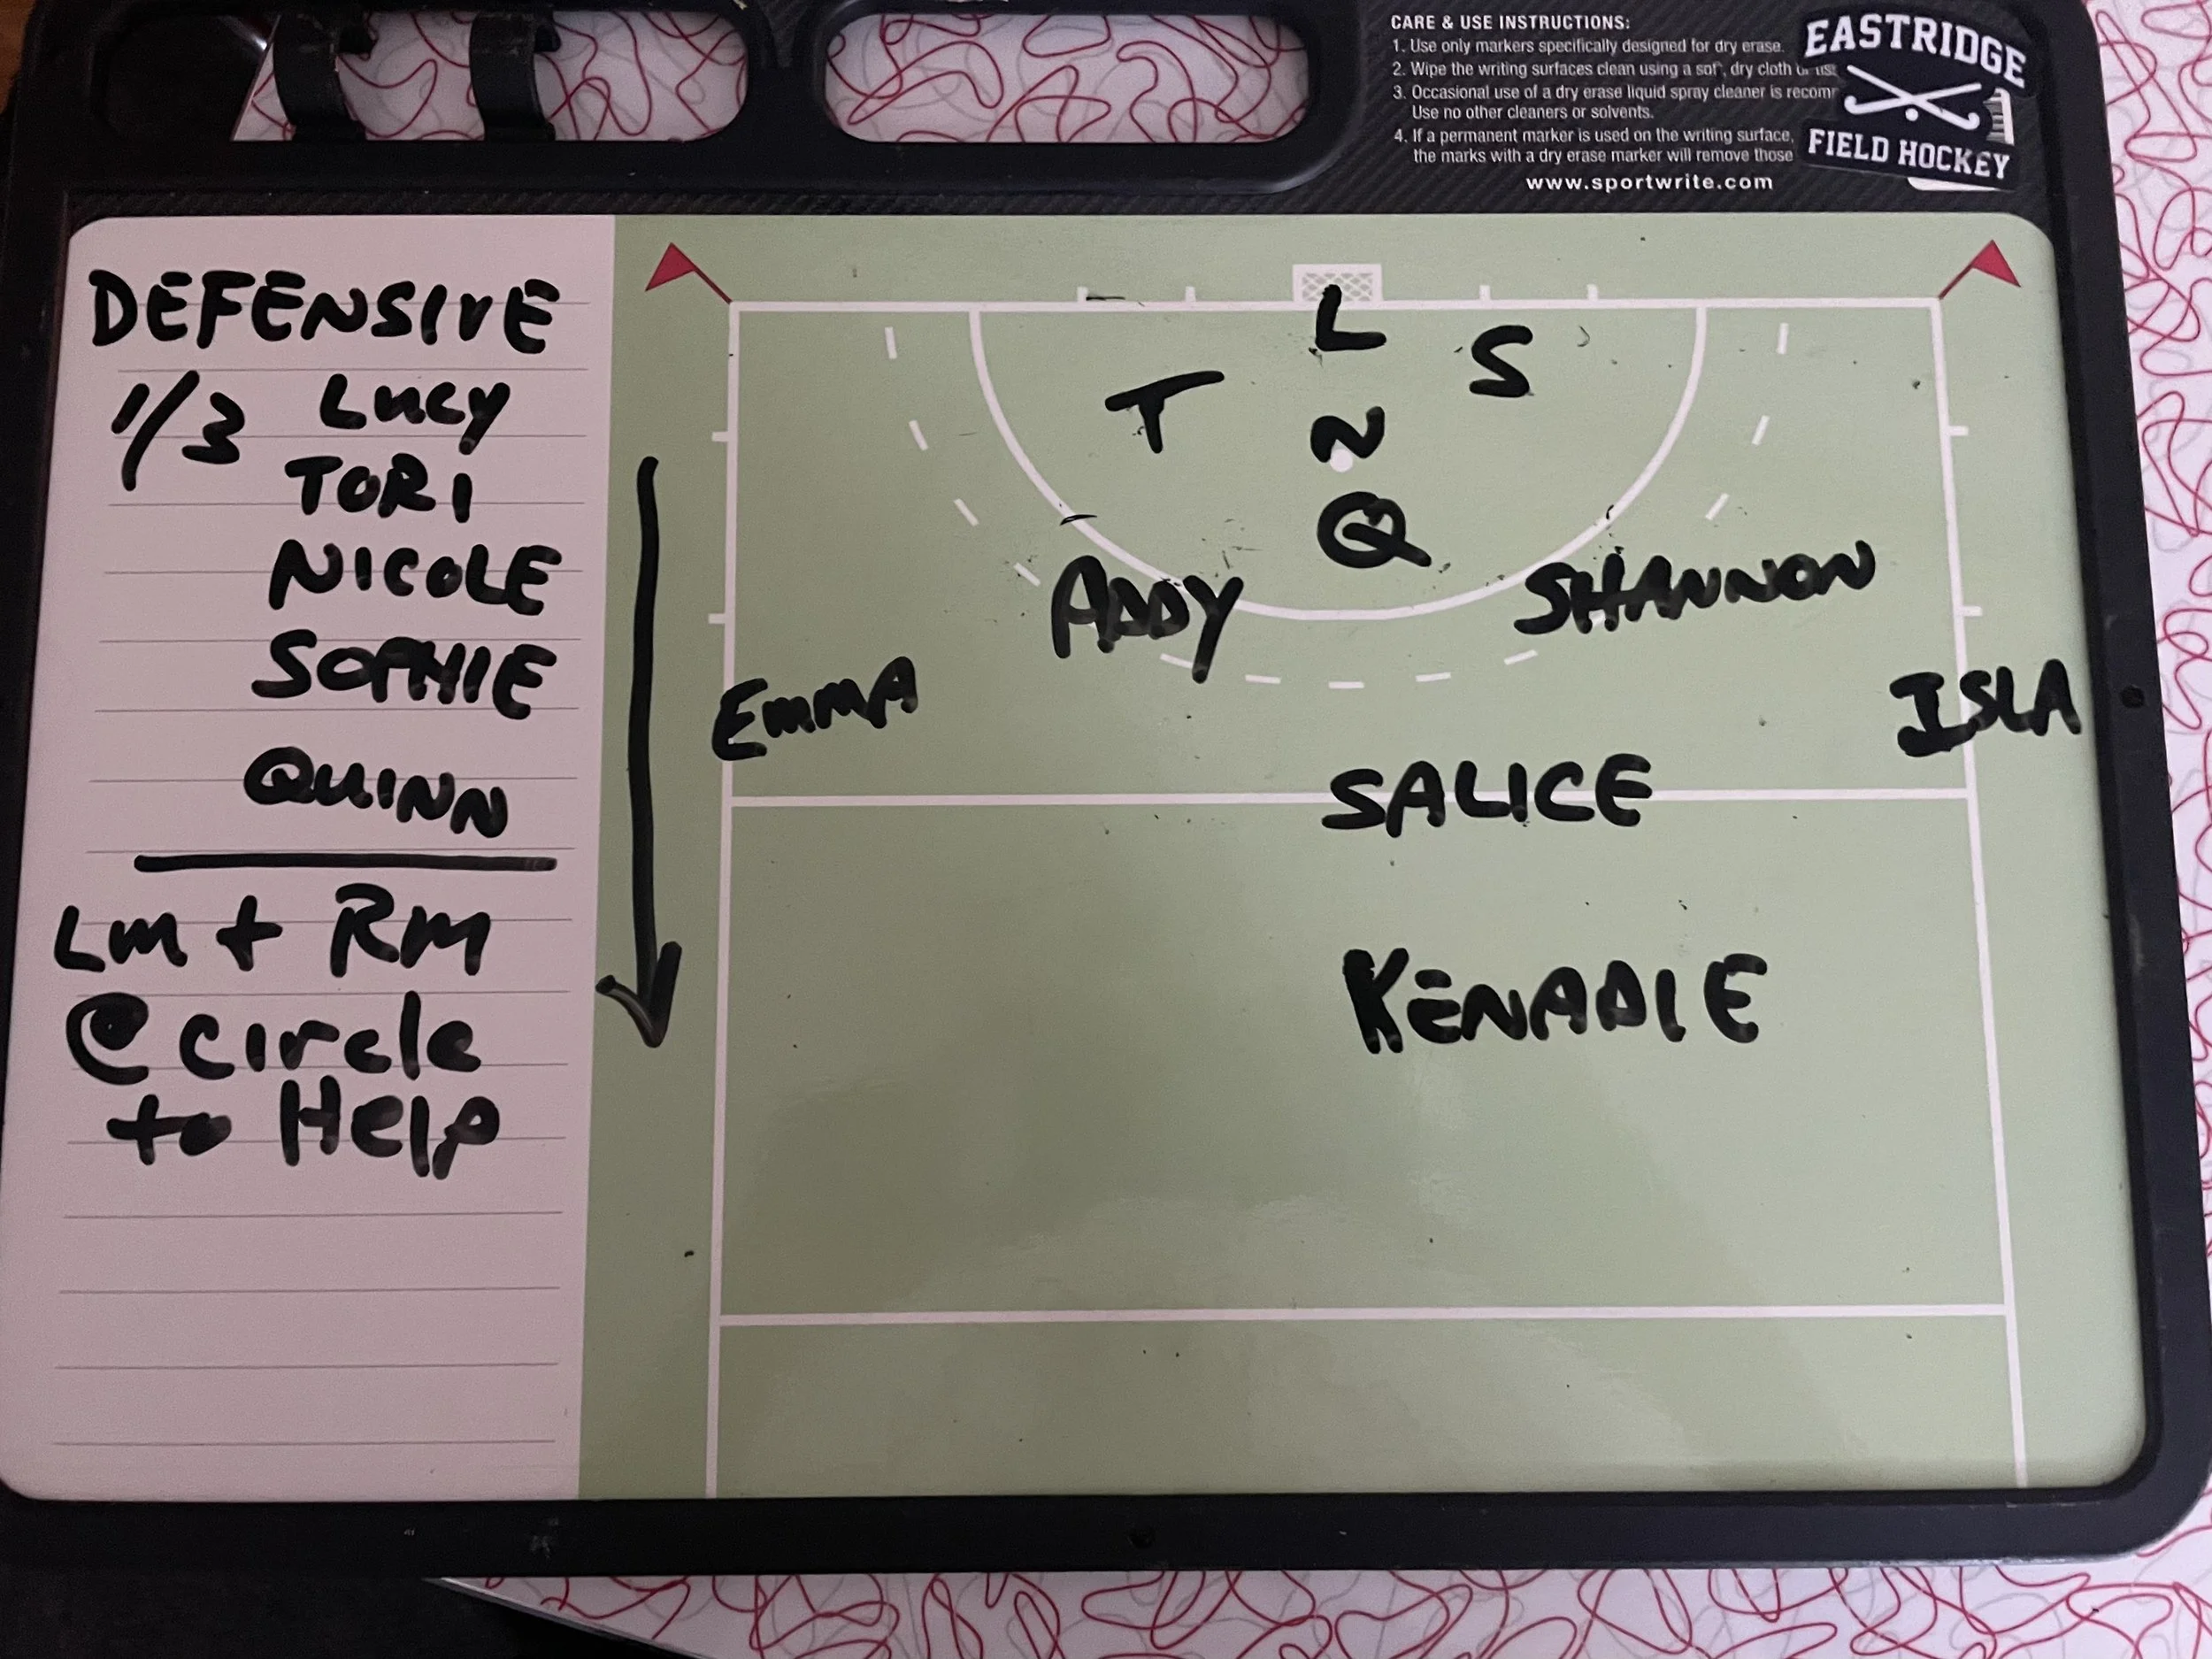 CARE & USE INSTRUCTIONS:
1. Use only markers specifically designed for dry erase.
2. Wipe the writing surfaces clean using a soft, dry cloth or
3. Occasional use of a dry erase liquid spray cleaner is
Use no other cleaners or solvents.
4. If a permanent marker is used on the writing surface,
the marks with a dry erase marker will remove those
www.sportwrite.com
EASTRIDGE
FIELD HOCKEY
DEFENSIVE
1/3 Lucy
TORI
NICOLE
SOPHIE
QUINN
Lm + Rm
@ circle
to Help
L
S
T
N
Q
ADDY
SHANNON
EmmA
ISLA
SALICE
KENADIE